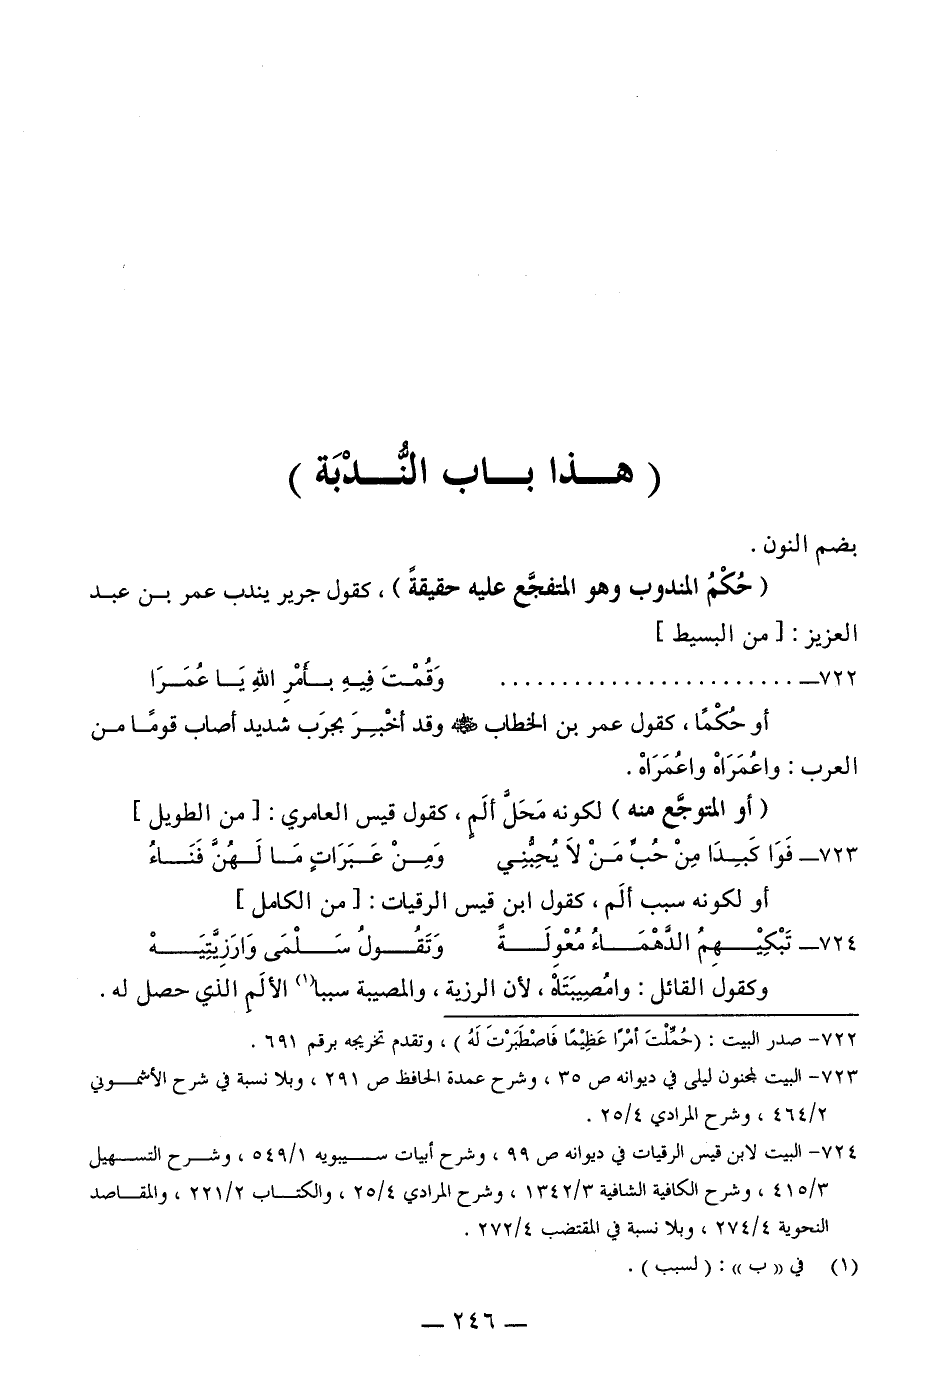 ( هـــذا بـــاب النُّـــدْبَة )
بضم النون .
( حُكْمُ المندوب وهو المتفجَّع عليه حقيقةً ) ، كقول جرير يندب عمر بـن عبـد
العزيز : [ من البسيط ]
٧٢٢ــ ......................... وَقُمْتَ فِيهِ بِأَمْرِ اللهِ يَا عُمَرَا
أو حُكْمًا ، كقول عمر بن الخطاب ﷺ وقد أخْبِرَ بجرَب شديد أصاب قومًا مـن
العرب : واعُمَرَاهْ واعُمَرَاهْ .
( أو المتوجَّع منه ) لكونه مَحَلَّ ألَمٍ ، كقول قيس العامري : [ من الطويل ]
٧٢٣ــ فَوَا كَبِدَا مِنْ حُبِّ مَنْ لاَ يُحِبُّنِي وَمِنْ عَبَرَاتٍ مَا لَهُنَّ فَنَاءُ
أو لكونه سبب ألَم ، كقول ابن قيس الرقيات : [ من الكامل ]
٧٢٤ــ تَبْكِيهِمُ الدَّهْمَاءُ مُعْوِلَةً وَتَقُولُ سَلْمَى وَارَزِيَّتِيَهْ
وكقول القائل : وامُصِيبَتَاهْ ، لأن الرزية ، والمصيبة سببا(١) الألَم الذي حصل له .
٧٢٢- صدر البيت : (حُمِّلْتَ أمْرًا عَظِيْمًا فَاصْطَبَرْتَ لَهُ ) ، وتقدم تخريجه برقم ٦٩١ .
٧٢٣- البيت لمجنون ليلى في ديوانه ص ٣٥ ، وشرح عمدة الحافظ ص ٢٩١ ، وبلا نسبة في شرح الأشمـوني
٤٦٤/٢ ، وشرح المرادي ٢٥/٤ .
٧٢٤- البيت لابن قيس الرقيات في ديوانه ص ٩٩ ، وشرح أبيات سـيبويه ٥٤٩/١ ، وشـرح التسـهيل
٤١٥/٣ ، وشرح الكافية الشافية ١٣٤٢/٣ ، وشرح المرادي ٢٥/٤ ، والكتـاب ٢٢١/٢ ، والمقـاصد
النحوية ٢٧٤/٤ ، وبلا نسبة في المقتضب ٢٧٢/٤ .
(١) في « ب » : ( لسبب ) .
ــ ٢٤٦ ــ